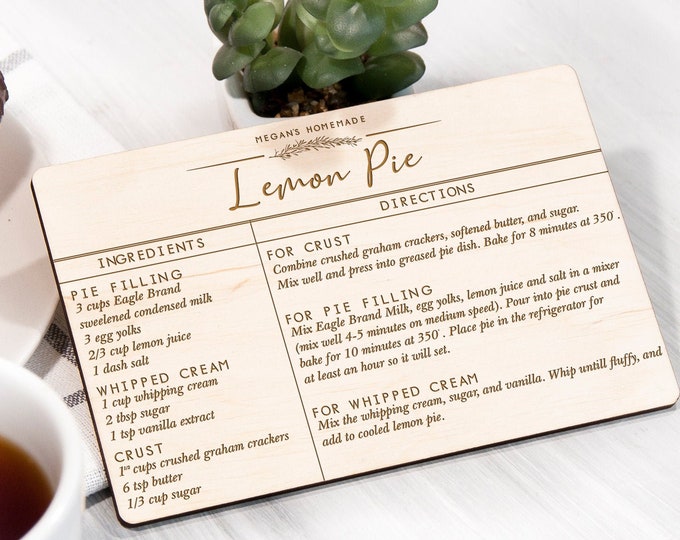 MEGAN'S HOMEMADE
Lemon Pie
INGREDIENTS
PIE FILLING
3 cups Eagle Brand
sweelened condensed milk
3 egg yolks
2/3 cup lemon juice
1 dash salt
WHIPPED CREAM
1 cup whipping cream
2 tbsp sugar
1 tsp vanilla extract
CRUST
cups crushed graham crackers
6 tsp butter
1/3 cup sugar
DIRECTIONS
FOR CRUST
Combine crushed graham crackers, softened butter, and sugar.
Mix well and press into greased pie dish. Bake for 8 minutes at 350°.
FOR PIE FILLING
Mix Eagle Brand Milk, egg yolks, lemon juice and salt in a mixer
(mix well 4-5 minutes on medium speed). Pour into pie crust and
bake for 10 minutes at 350°. Place pie in the refrigerator for
at least an hour so it will set.
FOR WHIPPED CREAM
Mix the whipping cream, sugar, and vanilla. Whip untill fluffy, and
add to cooled lemon pie.